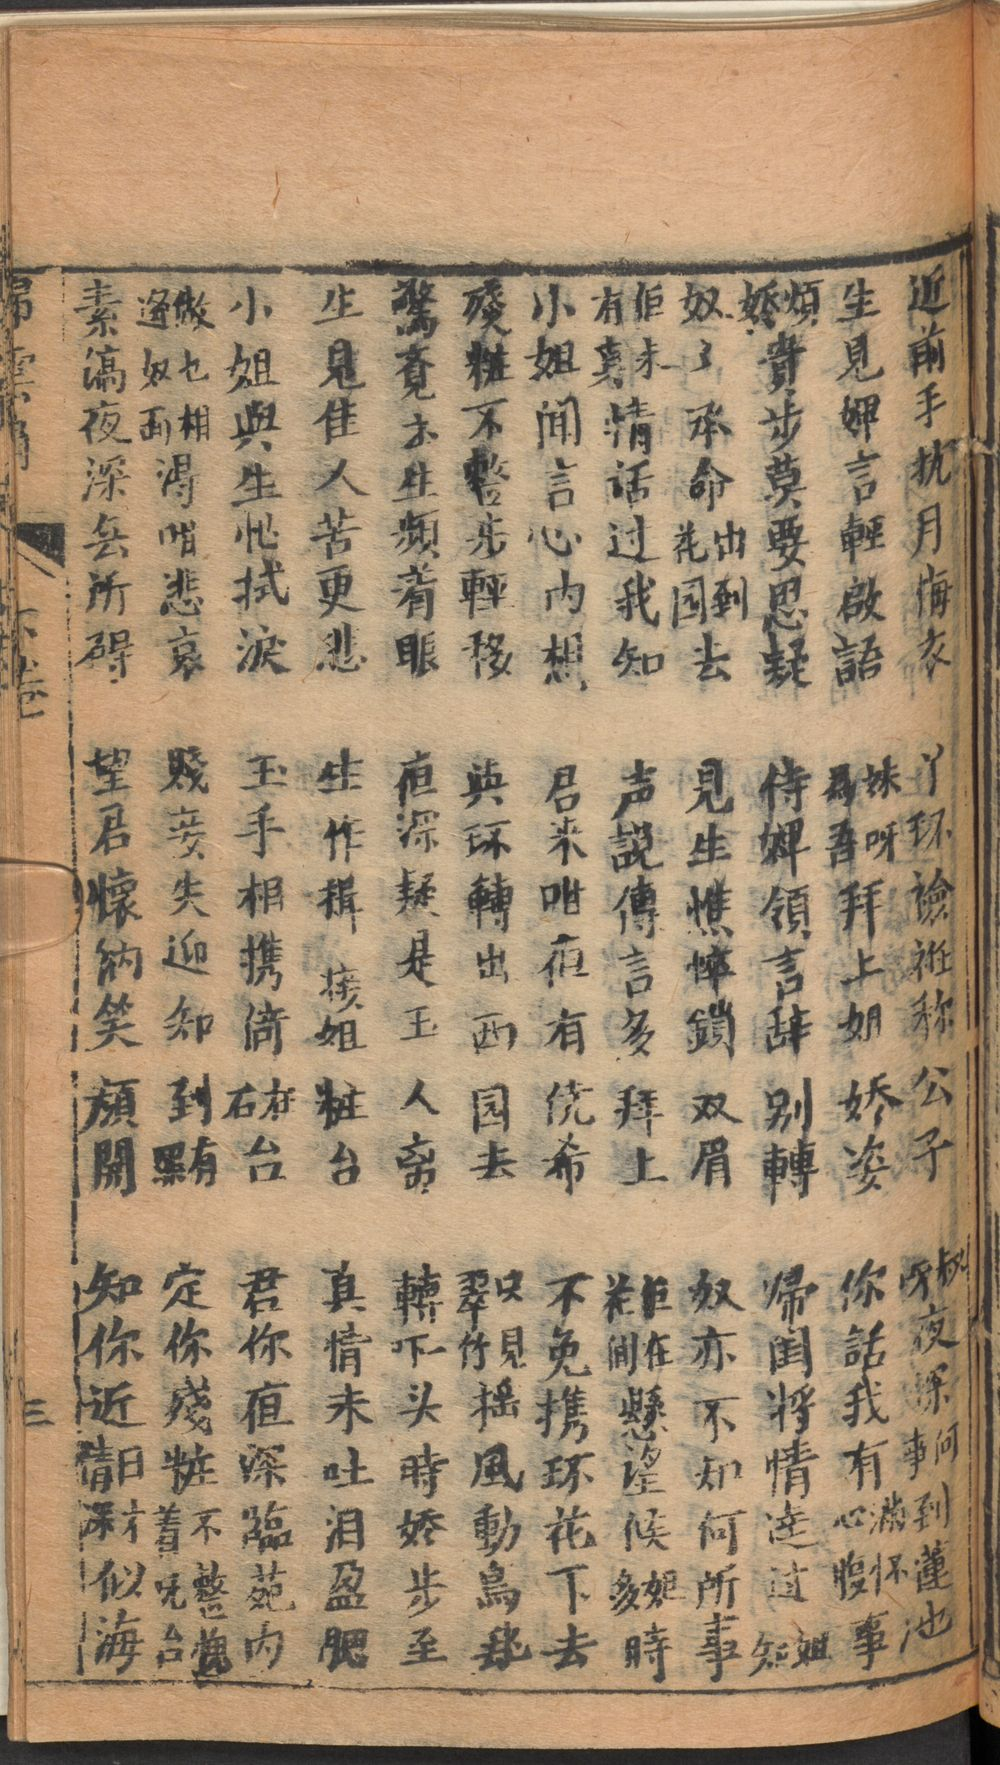 近前手执月悔衣　丫环襝衽称公子　叔呀夜深何事到蓮池
生見婢言輕啟語　妹呀為吾拜上如娇姿　你話我有滿怀心腹事
煩娇貴步莫要思疑　侍婢領言辞別轉　帰闺将情達过姐知
奴了承命出到花园去　見生憔悴鎖双眉　奴亦不知何所事
佢未有真情話过我知　声説傳言多拜上　佢在花间懸望候姐多時
小姐闻言心内想　君来咁夜有侥希　不免携环花下去
殘粧不整步輕移　與环轉出西园去　只見翠竹摇風動鳥飛
驚覔才生頻着眼　夜深疑是玉人离　轉下头時娇步至
生見佳人苦更悲　生作揖接姐粧台　真情未吐泪盈腮
小姐與生忙拭淚　玉手相携倚石台　君你夜深臨苑内
做乜相逢奴面得咁悲哀　賤妾失迎知到有罪　定你殘粧不整着呪鸞台
素縞夜深無所碍　望君懐納笑顔開　知你近日情才深似海
下卷
三